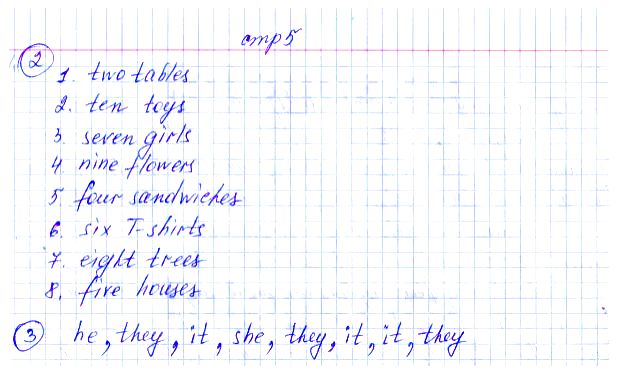 стр 5
2
1. two tables
2. ten toys
3. seven girls
4. nine flowers
5. four sandwiches
6. six T-shirts
7. eight trees
8. five houses
3 he, they, it, she, they, it, it, they